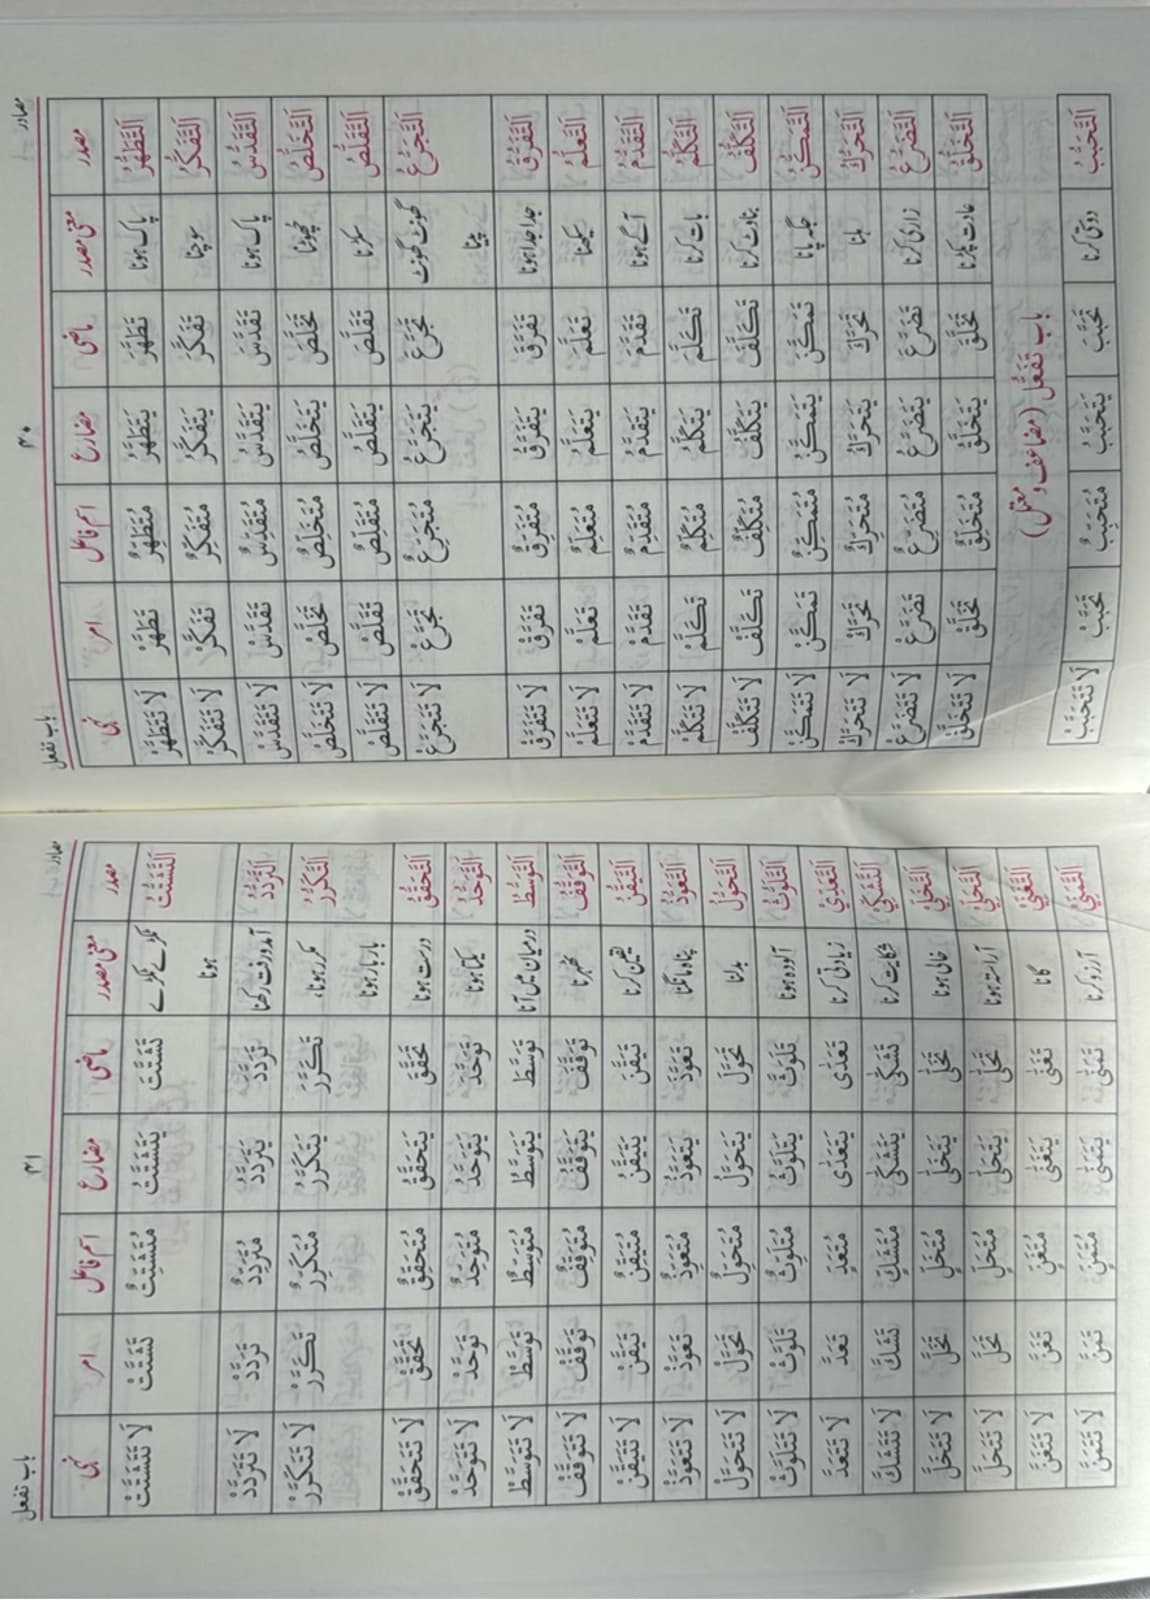 مصادر
۳۰
باب تفعل
مصدر معنی مصدر ماضی مضارع اسم فاعل امر نہی
اَلتَّطَهُّرُ پاک ہونا تَطَهَّرَ يَتَطَهَّرُ مُتَطَهِّرٌ تَطَهَّرْ لَا تَتَطَهَّرْ
اَلتَّفَكُّرُ سوچنا تَفَكَّرَ يَتَفَكَّرُ مُتَفَكِّرٌ تَفَكَّرْ لَا تَتَفَكَّرْ
اَلتَّقَدُّسُ پاک ہونا تَقَدَّسَ يَتَقَدَّسُ مُتَقَدِّسٌ تَقَدَّسْ لَا تَتَقَدَّسْ
اَلتَّخَلُّصُ چھوٹنا تَخَلَّصَ يَتَخَلَّصُ مُتَخَلِّصٌ تَخَلَّصْ لَا تَتَخَلَّصْ
اَلتَّقَلُّصُ سکڑنا تَقَلَّصَ يَتَقَلَّصُ مُتَقَلِّصٌ تَقَلَّصْ لَا تَتَقَلَّصْ
اَلتَّجَرُّعُ گھونٹ گھونٹ تَجَرَّعَ يَتَجَرَّعُ مُتَجَرِّعٌ تَجَرَّعْ لَا تَتَجَرَّعْ
پینا
اَلتَّفَرُّقُ جدا جدا ہونا تَفَرَّقَ يَتَفَرَّقُ مُتَفَرِّقٌ تَفَرَّقْ لَا تَتَفَرَّقْ
اَلتَّعَلُّمُ سیکھنا تَعَلَّمَ يَتَعَلَّمُ مُتَعَلِّمٌ تَعَلَّمْ لَا تَتَعَلَّمْ
اَلتَّقَدُّمُ آگے ہونا تَقَدَّمَ يَتَقَدَّمُ مُتَقَدِّمٌ تَقَدَّمْ لَا تَتَقَدَّمْ
اَلتَّكَلُّمُ بات کرنا تَكَلَّمَ يَتَكَلَّمُ مُتَكَلِّمٌ تَكَلَّمْ لَا تَتَكَلَّمْ
اَلتَّكَلُّفُ بناوٹ کرنا تَكَلَّفَ يَتَكَلَّفُ مُتَكَلِّفٌ تَكَلَّفْ لَا تَتَكَلَّفْ
اَلتَّمَكُّنُ جگہ پانا تَمَكَّنَ يَتَمَكَّنُ مُتَمَكِّنٌ تَمَكَّنْ لَا تَتَمَكَّنْ
اَلتَّحَرُّكُ ہلنا تَحَرَّكَ يَتَحَرَّكُ مُتَحَرِّكٌ تَحَرَّكْ لَا تَتَحَرَّكْ
اَلتَّضَرُّعُ زاری کرنا تَضَرَّعَ يَتَضَرَّعُ مُتَضَرِّعٌ تَضَرَّعْ لَا تَتَضَرَّعْ
اَلتَّخَلُّقُ عادت پکڑنا تَخَلَّقَ يَتَخَلَّقُ مُتَخَلِّقٌ تَخَلَّقْ لَا تَتَخَلَّقْ
باب تَفَعُّل (مضاعف و معتل)
اَلتَّحَبُّبُ دوستی کرنا تَحَبَّبَ يَتَحَبَّبُ مُتَحَبِّبٌ تَحَبَّبْ لَا تَتَحَبَّبْ
مصادر
۳۱
باب تفعل
مصدر معنی مصدر ماضی مضارع اسم فاعل امر نہی
اَلتَّشَتُّتُ ٹکڑے ٹکڑے تَشَتَّتَ يَتَشَتَّتُ مُتَشَتِّتٌ تَشَتَّتْ لَا تَتَشَتَّتْ
ہونا
اَلتَّرَدُّدُ آمدورفت رکھنا تَرَدَّدَ يَتَرَدَّدُ مُتَرَدِّدٌ تَرَدَّدْ لَا تَتَرَدَّدْ
اَلتَّكَرُّرُ مکرر ہونا، تَكَرَّرَ يَتَكَرَّرُ مُتَكَرِّرٌ تَكَرَّرْ لَا تَتَكَرَّرْ
بار بار ہونا
اَلتَّحَقُّقُ درست ہونا تَحَقَّقَ يَتَحَقَّقُ مُتَحَقِّقٌ تَحَقَّقْ لَا تَتَحَقَّقْ
اَلتَّوَحُّدُ یکتا ہونا تَوَحَّدَ يَتَوَحَّدُ مُتَوَحِّدٌ تَوَحَّدْ لَا تَتَوَحَّدْ
اَلتَّوَسُّطُ درمیان میں آنا تَوَسَّطَ يَتَوَسَّطُ مُتَوَسِّطٌ تَوَسَّطْ لَا تَتَوَسَّطْ
اَلتَّوَقُّفُ ٹھہرنا تَوَقَّفَ يَتَوَقَّفُ مُتَوَقِّفٌ تَوَقَّفْ لَا تَتَوَقَّفْ
اَلتَّيَقُّنُ یقین کرنا تَيَقَّنَ يَتَيَقَّنُ مُتَيَقِّنٌ تَيَقَّنْ لَا تَتَيَقَّنْ
اَلتَّعَوُّذُ پناہ مانگنا تَعَوَّذَ يَتَعَوَّذُ مُتَعَوِّذٌ تَعَوَّذْ لَا تَتَعَوَّذْ
اَلتَّحَوُّلُ بدلنا تَحَوَّلَ يَتَحَوَّلُ مُتَحَوِّلٌ تَحَوَّلْ لَا تَتَحَوَّلْ
اَلتَّلَوُّثُ آلودہ ہونا تَلَوَّثَ يَتَلَوَّثُ مُتَلَوِّثٌ تَلَوَّثْ لَا تَتَلَوَّثْ
اَلتَّعَدِّيْ زیادتی کرنا تَعَدّٰى يَتَعَدّٰى مُتَعَدٍّ تَعَدَّ لَا تَتَعَدَّ
اَلتَّشَكِّيْ شکایت کرنا تَشَكّٰى يَتَشَكّٰى مُتَشَكٍّ تَشَكَّ لَا تَتَشَكَّ
اَلتَّخَلِّيْ خالی ہونا تَخَلّٰى يَتَخَلّٰى مُتَخَلٍّ تَخَلَّ لَا تَتَخَلَّ
اَلتَّحَلِّيْ آراستہ ہونا تَحَلّٰى يَتَحَلّٰى مُتَحَلٍّ تَحَلَّ لَا تَتَحَلَّ
اَلتَّغَنِّيْ گانا تَغَنّٰى يَتَغَنّٰى مُتَغَنٍّ تَغَنَّ لَا تَتَغَنَّ
اَلتَّمَنِّيْ آرزو کرنا تَمَنّٰى يَتَمَنّٰى مُتَمَنٍّ تَمَنَّ لَا تَتَمَنَّ